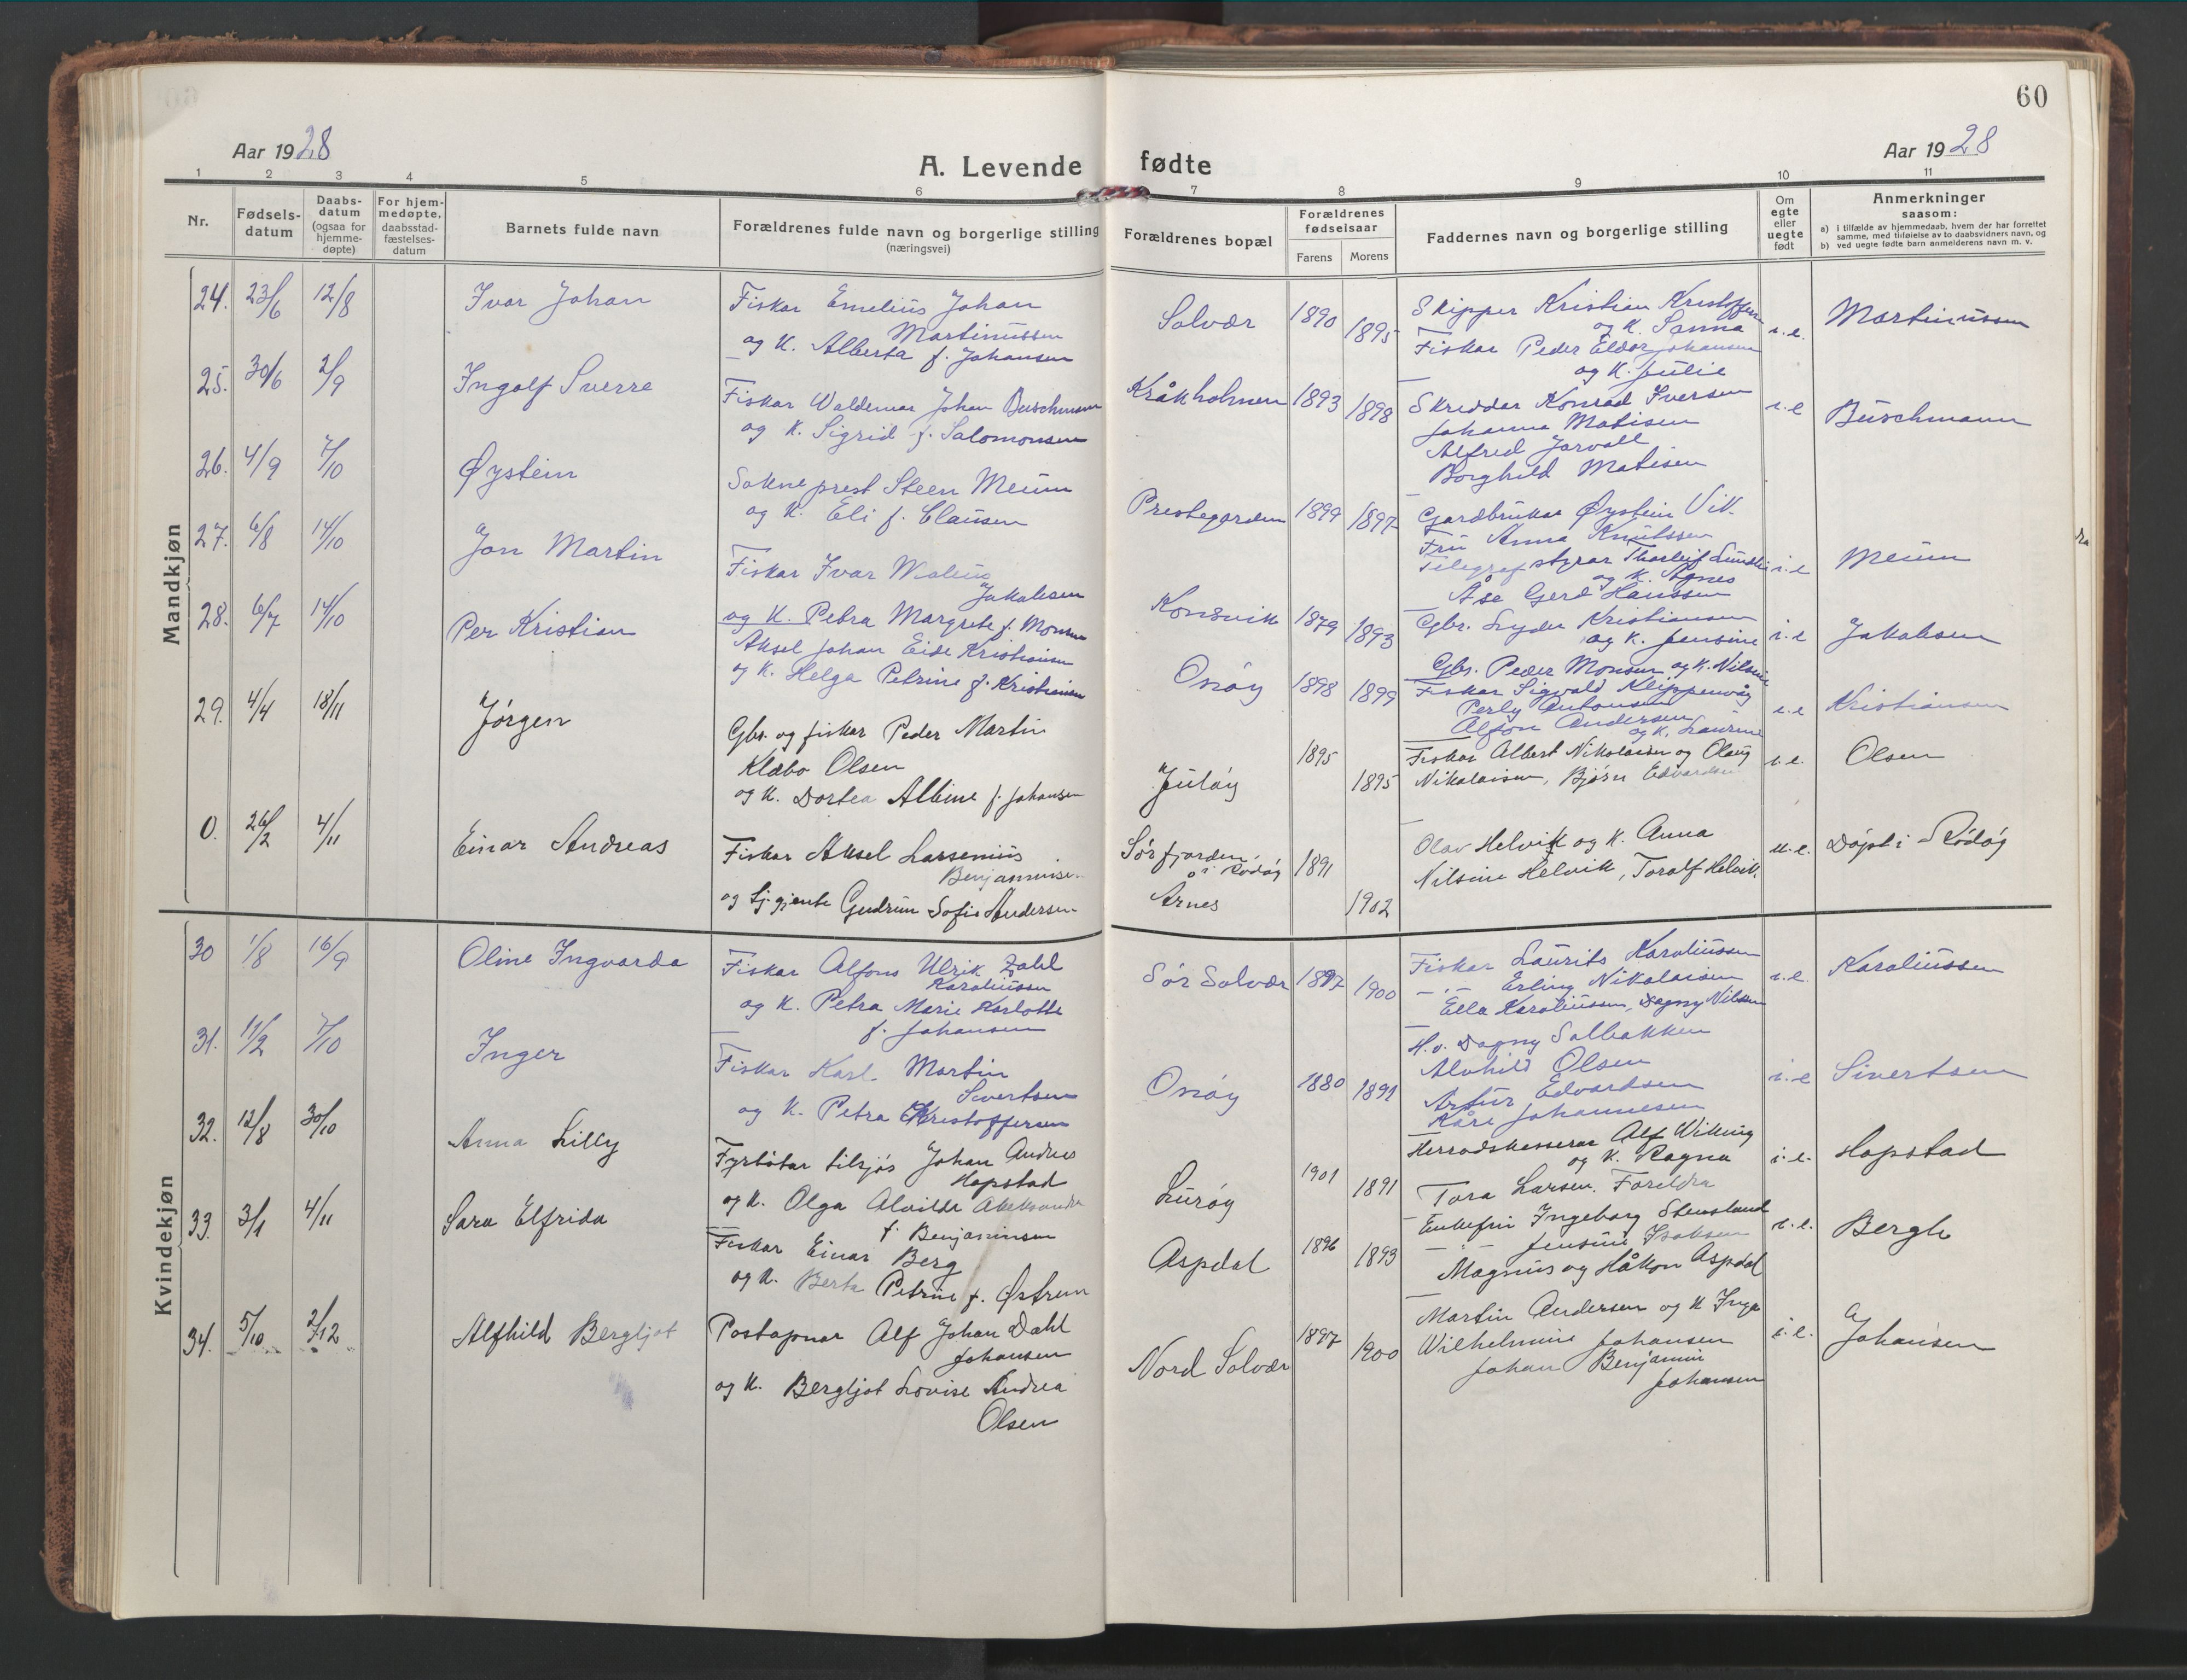 60
Aar 1928
A. Levende fødte
Aar 1928
1 2 3 4 5 6 7 8 9 10 11
Nr.
Fødsels-
datum
Daabs-
datum
(ogsaa for
hjemme-
døpte)
For hjem-
medøpte,
daabsstad-
fæstelses-
datum
Barnets fulde navn
Forældrenes fulde navn og borgerlige stilling
(næringsvei)
Forældrenes bopæl
Forældrenes
fødselsaar
Farens Morens
Faddernes navn og borgerlige stilling
Om
egte
eller
uegte
født
Anmerkninger
saasom:
a) i tilfælde av hjemmedaab, hvem der har forrettet
samme, med tilføielse av to daabsvidners navn, og
b) ved uegte fødte barn anmelderens navn m. v.
Mandkjøn
24. 23/6 12/8 Ivar Johan
Fiskar Emelius Johan
Martinussen
og K. Alberta f. Johansen
Solvær 1890 1895
Skipper Kristian Kristoffersen
og K. Sanna
Fiskar Peder Eldor Johansen
og K. Julie
i.e. Martinussen
25. 30/6 2/9 Ingolf Sverre
Fiskar Waldemar Johan Buschmann
og K. Sigrid f. Salomonsen
Kråkholmen 1893 1898
Skredder Konrad Iversen
Johanna Matisen
Alfred Jorvall
Borghild Matisen
i.e Buschmann
26. 4/9 7/10 Øystein
Sokneprest Steen Meum
og K. Eli f. Clausen
Prestegarden 1899 1897
Gardbrukar Øystein Vik.
Fru Anna Knutssen
Telegrafstyrar Thorleif
og K. Agnes
Åse Gerd Hanssen
i.e Meum
27. 6/8 14/10 Jon Martin
Fiskar Ivar
Jakobsen
og K. Petra Margrete f. Monsen
Konsvik 1879 1893
Gbr. Lyder Kristiansen
og K. Jensine
Gbr. Peder Monsen og K. Nilsine
i.e Jakobsen
28. 6/7 14/10 Per Kristian
Aksel Johan Eide Kristiansen
og K. Helga Petrine f. Kristiansen
Onøy 1898 1899
Fiskar Sigvald Klippenvåg
Perly Antonsen
Alfon Andersen
og K. Laurine
i.e Kristiansen
29. 4/4 18/11 Jørgen
Gbr. og fiskar Peder Martin
Klæbo Olsen
og K. Dortea Albine f. Johansen
Juløy 1895 1895
Fiskar Albert Nikolaisen og Olaug
Nikolaisen, Bjørn Edvardsen
i.e. Olsen
0. 26/2 4/11 Einar Andreas
Fiskar Aksel Larsenius
Benjaminsen
og tj.gjente Gudrun Sofie Andersen
Sørfjorden
i Rødøy
Årnes
1891 1902
Olav Helvik og K. Anna
Nilsine Helvik, Toralf Helvik.
u.e. Døpt i Rødøy
Kvindekjøn
30 1/8 16/9 Oline Ingvarda
Fiskar Alfons Ulrik Zahl
Karoliussen
og K. Petra Marie Karlotte
f. Johansen
Sør Solvær 1897 1900
Fiskar Laurits Karoliussen
-"- Erling Nikolaisen
Ella Karoliussen, Dagny Nilssen
i.e. Karoliussen
31. 11/2 7/10 Inger
Fiskar Karl Martin
Sivertsen
og K. Petra Kristoffersen
Onøy 1880 1891
H.v. Dagny Solbakken
Alvhild Olsen
Artur Edvardsen
Kåre Johannesen
i.e Sivertsen
32. 12/8 30/10 Anna Lilly
Fyrbøtar tilsjøs Johan Andreas
Hopstad
og K. Olga Alvilde Aleksandra
f. Benjaminsen
Lurøy 1901 1891
Herradskasserar Alf Wiking
og K. Ragna
Tora Larsen. Foreldra
i.e. Hopstad
33. 3/1 4/11 Sara Elfrida
Fiskar Einar Berg
og K. Berta Petrine f. Østrem
Aspdal 1896 1893
Enkefru Ingeborg Stensland
-"- Jensine Isaksen
Magnus og Håkon Aspdal
i.e. Bergh
34. 5/10 2/12 Alfhild Bergljot
Postopnar Alf Johan Dahl
Johansen
og K. Bergljot Lovise Andrea
Olsen
Nord Solvær 1897 1900
Martin Andersen og K Inga
Wilhelmine Johansen
Johan Benjamin
Johansen
i.e. Johansen